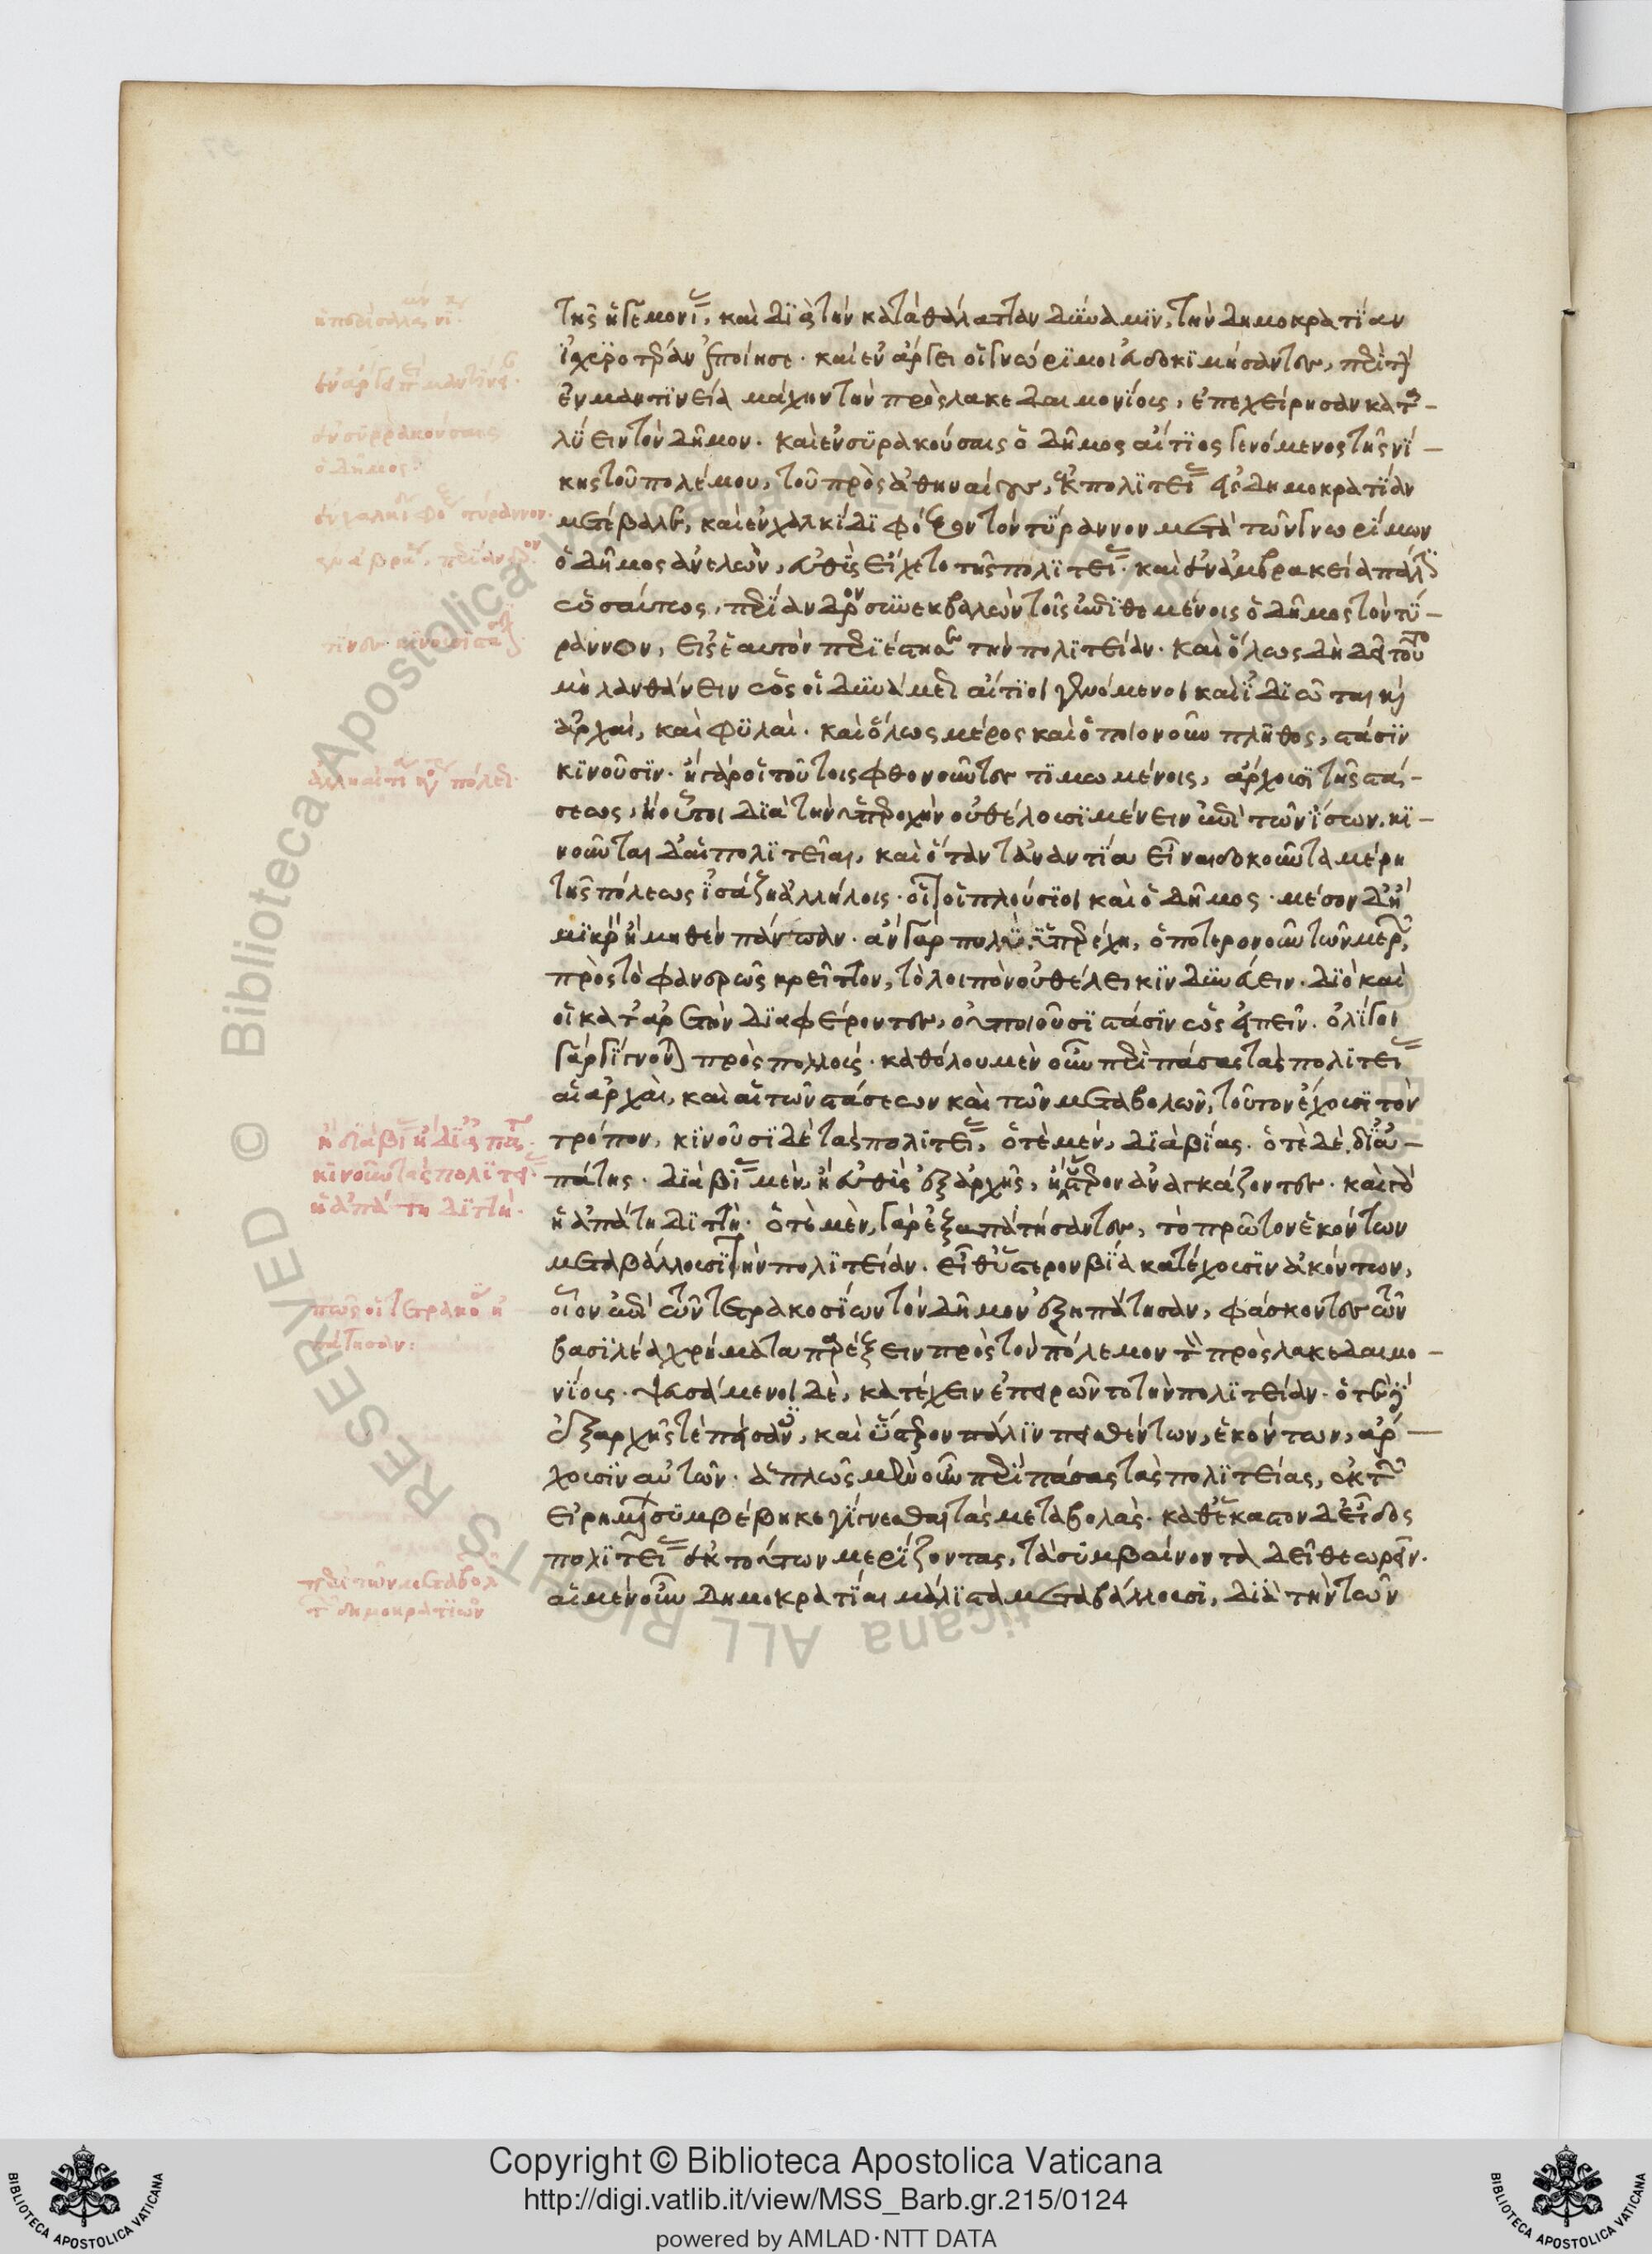 τῆς ἡγεμονίας, καὶ διὰ τὴν κατὰ θάλατταν δύναμιν, τὴν δημοκρατίαν
ἰσχυροτέραν ἐποίησε. καὶ ἐν ἄργει οἱ γνώριμοι εὐδοκιμήσαντες, περὶ τὴν
ἐν μαντινείᾳ μάχην τὴν πρὸς λακεδαιμονίους, ἐπεχείρησαν κατα-
λύειν τὸν δῆμον. καὶ ἐν συρακούσαις ὁ δῆμος αἴτιος γενόμενος τῆς νί-
κης τοῦ πολέμου, τοῦ πρὸς ἀθηναίους, ἐκ πολιτείας εἰς δημοκρατίαν
μετέβαλε, καὶ ἐν χαλκίδι φόξον τὸν τύραννον μετὰ τῶν γνωρίμων
ὁ δῆμος ἀνελὼν, εὐθὺς εἴχετο τῆς πολιτείας. καὶ ἐν ἀμβρακείᾳ πάλιν
ὡσαύτως, περίανδρον συνεκβαλὼν τοῖς ἐπιθεμένοις ὁ δῆμος τὸν τύ-
ραννον, εἰς ἑαυτὸν περιέστησε τὴν πολιτείαν. καὶ ὅλως δὴ δεῖ τοῦτο
μὴ λανθάνειν ὡς οἱ δυνάμεως αἴτιοι γενόμενοι καὶ ἰδιῶται καὶ
ἀρχαὶ, καὶ φυλαὶ. καὶ ὅλως μέρος καὶ ὁποιονοῦν πλῆθος, στάσιν
κινοῦσιν. ἢ γὰρ οἱ τούτοις φθονοῦντες τιμωμένοις, ἄρχουσι τῆς στά-
σεως, ἢ οὗτοι διὰ τὴν ὑπεροχὴν οὐ θέλουσι μένειν ἐπὶ τῶν ἴσων. κι-
νοῦνται δ' αἱ πολιτεῖαι, καὶ ὅταν τἀναντία εἶναι δοκοῦντα μέρη
τῆς πόλεως ἰσάζῃ ἀλλήλοις. οἷον οἱ πλούσιοι καὶ ὁ δῆμος. μέσον δ' ᾖ
μικρὸν ἢ μηθὲν πάντων. ἂν γὰρ πολὺ ὑπερέχῃ, ὁποτερονοῦν τῶν μερῶν,
πρὸς τὸ φανερῶς κρεῖττον, τὸ λοιπὸν οὐ θέλει κινδυνεύειν. διὸ καὶ
οἱ κατ' ἀρετὴν διαφέροντες, οὐ ποιοῦσι στάσιν ὡς εἰπεῖν. ὀλίγοι
γὰρ γίγνονται πρὸς πολλούς. καθόλου μὲν οὖν περὶ πάσας τὰς πολιτείας
αἱ ἀρχαὶ, καὶ αἱ τῶν στάσεων καὶ τῶν μεταβολῶν, τοῦτον ἔχουσι τὸν
τρόπον, κινοῦσι δὲ τὰς πολιτείας, ὁτὲ μὲν, διὰ βίας. ὁτὲ δὲ, δι' ἀ-
πάτης. διὰ βίας μὲν, ἢ εὐθὺς ἐξ ἀρχῆς, ἢ ὕστερον ἀναγκάζοντες. καὶ γὰρ
ἡ ἀπάτη διττή. ὁτὲ μὲν, γὰρ ἐξαπατήσαντες, τὸ πρῶτον ἑκόντων
μεταβάλλουσι τὴν πολιτείαν. εἶθ' ὕστερον βίᾳ κατέχουσιν ἀκόντων,
οἷον ἐπὶ τῶν τετρακοσίων τὸν δῆμον ἐξηπάτησαν, φάσκοντες τὸν
βασιλέα χρήματα παρέξειν πρὸς τὸν πόλεμον τὸν πρὸς λακεδαιμο-
νίους. ψευσάμενοι δὲ, κατέχειν ἐπειρῶντο τὴν πολιτείαν. ὁτὲ δὲ
ἐξ ἀρχῆς τε πείσαντες, καὶ ὕστερον πάλιν πεισθέντων, ἑκόντων, ἄρ-
χουσιν αὐτῶν. ἁπλῶς μὲν οὖν περὶ πάσας τὰς πολιτείας, ἐκ τῶν
εἰρημένων συμβέβηκε γίγνεσθαι τὰς μεταβολὰς. καθ' ἕκαστον δ' εἶδος
πολιτείας ἐκ τούτων μερίζοντας, τὰ συμβαίνοντα δεῖ θεωρεῖν.
αἱ μὲν οὖν δημοκρατίαι μάλιστα μεταβάλλουσι, διὰ τὴν τῶν
ἐν συρρακούσαις
ὁ δῆμος
ἢ διὰ βίας ἢ δι' ἀπάτης
κινοῦν τὰς πολιτείας
ἡ ἀπάτη διττή.
περὶ τῶν μεταβολῶν
τῶν δημοκρατιῶν
Copyright © Biblioteca Apostolica Vaticana
http://digi.vatlib.it/view/MSS_Barb.gr.215/0124
powered by AMLAD·NTT DATA
BIBLIOTECA APOSTOLICA VATICANA
BIBLIOTECA APOSTOLICA VATICANA
© Biblioteca Apostolica Vaticana ALL RIGHTS RESERVED